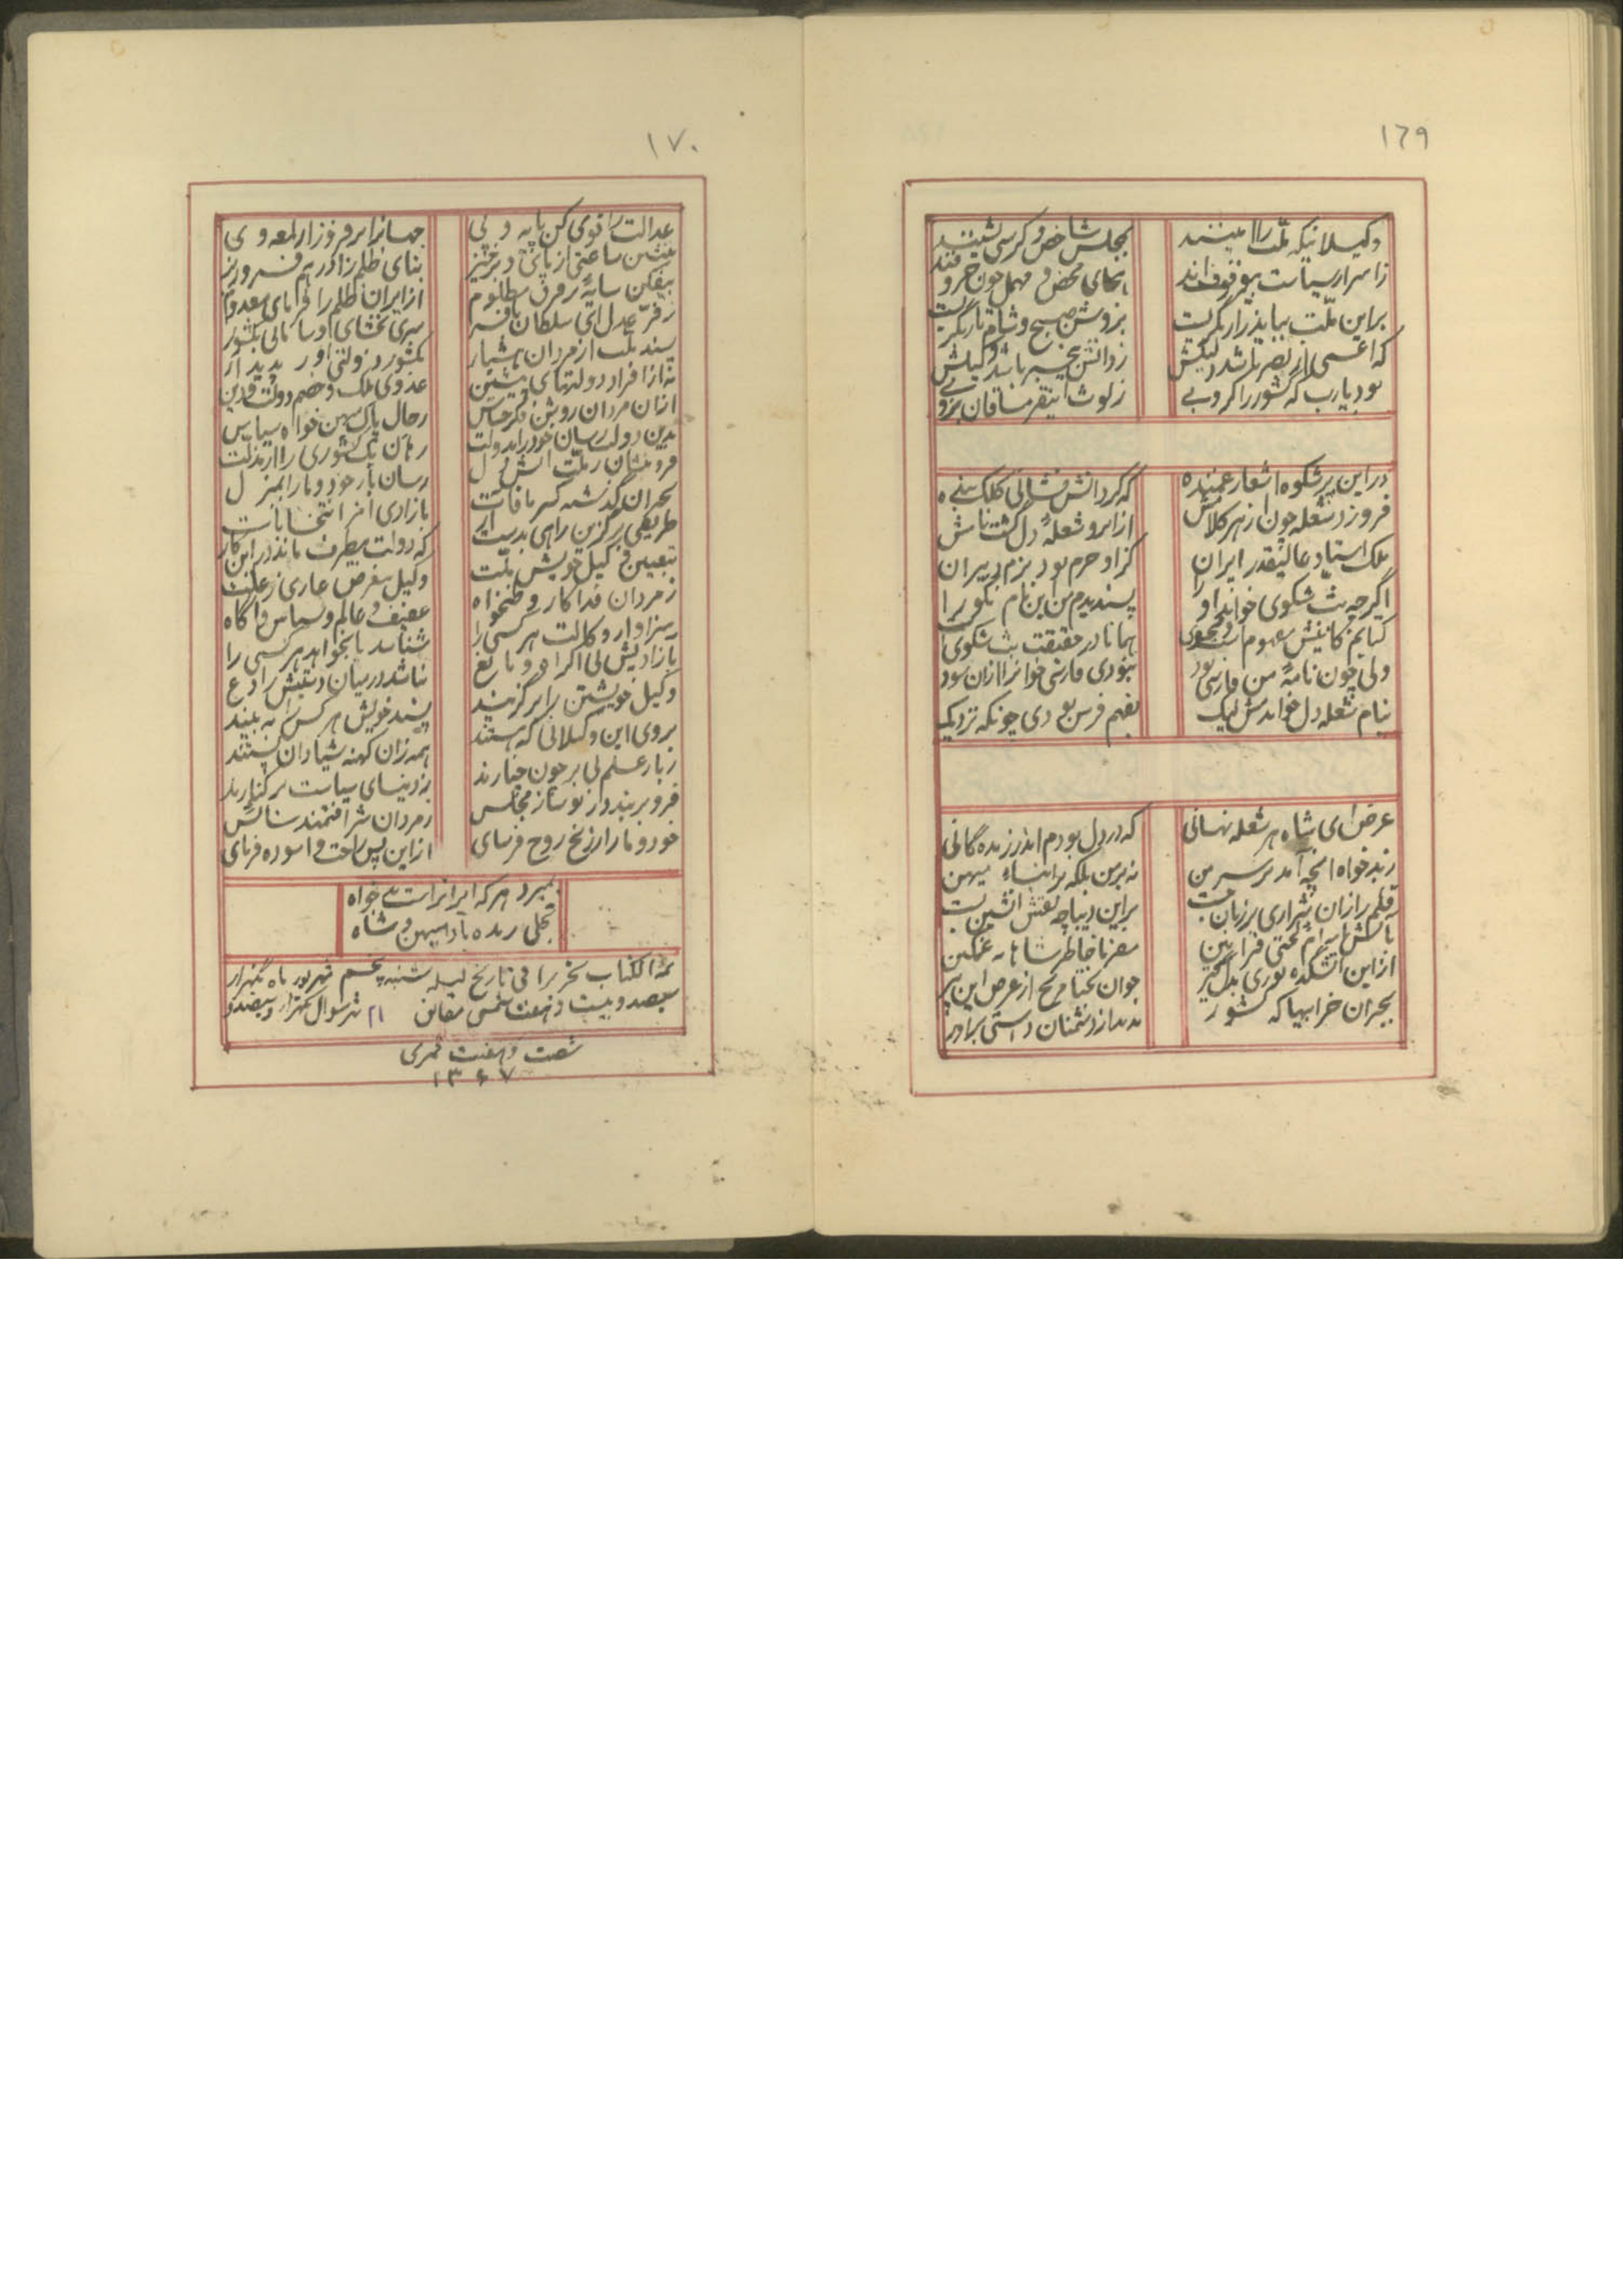 ۱۶۹
وکیلانیکه ملت را امینند
بمجلس شاخص و کرسی نشینند
ز اسرار سیاست بیوقوف‌اند
براین ملت بباید زار بگریست
بروشن صبح و شام تار بگریست
که اعمی از بصر باشد دلیلش
ز دانش بیخبر باشد وکیلش
بود یارب که کشور را کروبی
ز لوث اینقر مساقان بروبی
در این پرشکوه اشعار عمیده
که گردآتش فشانی کلک بنده
فروزد شعله چون از هر کلامش
از ایرو شعلهٔ دل گشت نامش
ملک استاد عالیقدر ایران
کز او خرم بود بزم دبیران
اگرچه بث شکوی خواند او را
پسندیدم من این نام نکو را
کتابم کاینش مفهوم است و فحوی
همانا در حقیقت بث شکوی
ولی چون نامهٔ من فارسی بود
نبودی فارسی خوانرا از آن سود
بنام شعله دل خواندمش لیک
بفهم فرس بودی چونکه نزدیک
غرض ای شاه هر شعله نهانی
که در دل بودم اندر زنده گانی
ز بدخواه آنچه آمد بر سر من
نه بر من بلکه بر ابناء میهن
قلم را زان شراری بر زبان جست
بر این دیباچه نقش آتشین بست
مصرنا خاطر شاهانه غمگین
از این آتشکده نوری بدل گیر
جوان بختا مرنج از عرض این پیر
بحران خرابیها که کشور
بدید از دشمنان داستی برادر
۱۷۰
عدالت را قوی کن پایه ولی
جهانرا برفروز از لمعه وی
بنشین ساعتی از پای و برخیز
بیفکن سایهٔ بر فرق مظلوم
از ایران ظلم را فرمای معدوم
ز فرّ عدل ای سلطان با فر
سری بخشای و سامانی بکشور
پسند ملت از مردان هشیار
بکشور دولتی آور پدیدار
نه از افراد دولتهای پیشین
عدوی ملک و خصم دولت و دین
از آن مردان روشن فکر حساس
رجال پاک میهن خواه سیاس
بدین دولت رسان خود را بدولت
رهان یک کشوری را از مذلت
فرونشان ز ملت آتش دل
رسان بار خود و ما را بمنزل
بحران گذشته کسر مافات
بآزادی امر انتخابات
طریقی برگزین راهی بدست آر
که دولت بیطرف ماند در این کار
بتعیین وکیل خویش ملت
وکیل بیغرض عاری ز علت
ز مردان فداکار و وطنخواه
عفیف و عالم و سیاس و آگاه
سزاوار وکالت هر کسی را
شناسد یا بخواهد هر کسی را
بآزادیش بی اکراه و مانع
نباشد در میان دستیش رادع
وکیل خویشتن را برگزیند
پسند خویش هر کس را به بیند
بروی این وکیلانی که هستند
همه زان کهنه شیادان پستند
ز بار علم بی بر چون خیارند
ز دنیای سیاست برکنارند
فروبر بند در نو ساز مجلس
ز مردان شرافتمند سائس
خود و ما را ز رنج روح فرسای
از این پس راحت و آسوده فرمای
بمیرد هر که ایرانراست بدخواه
تجلی زنده بادا میهن و شاه
تمة الکتاب تحریرا فی تاریخ لیله شنبه پنجم شهریور ماه یکهزار
سیصد و بیست و هفت شمسی مطابق ۲۱ شهر شوال یکهزار و سیصد و
شصت و هفت قمری
۱۳۶۷